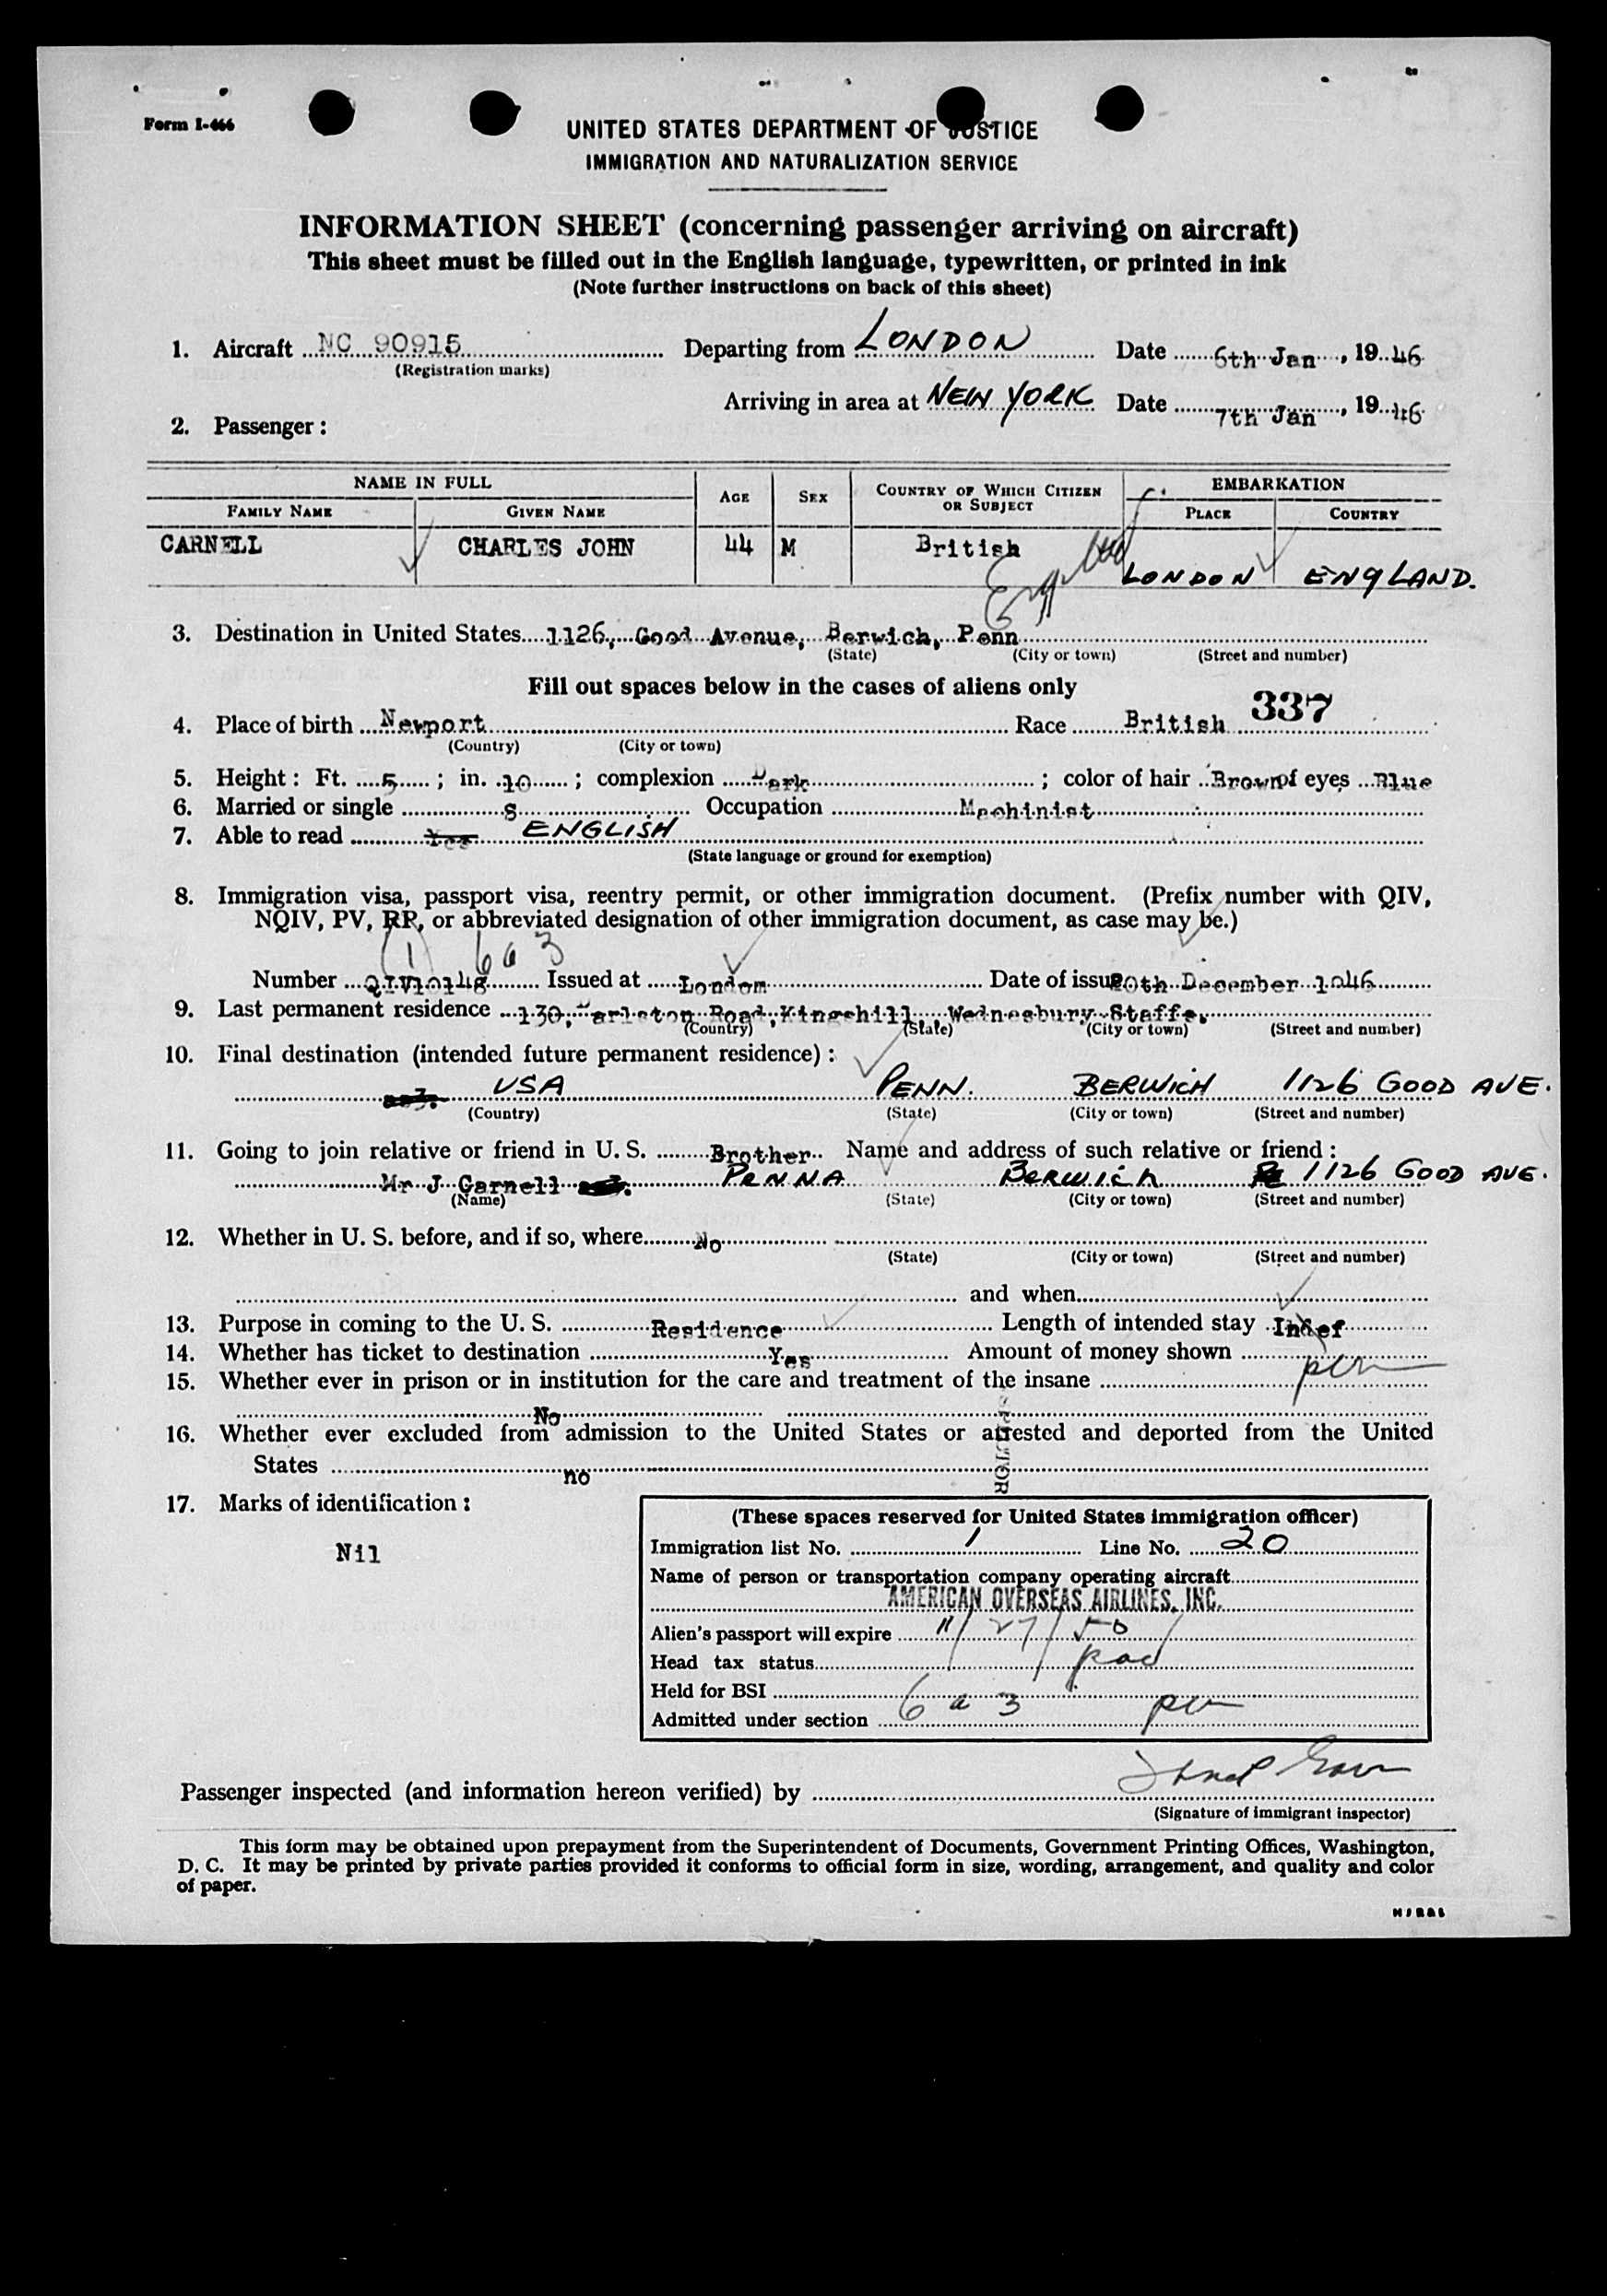 Form I-466
UNITED STATES DEPARTMENT OF JUSTICE
IMMIGRATION AND NATURALIZATION SERVICE
INFORMATION SHEET (concerning passenger arriving on aircraft)
This sheet must be filled out in the English language, typewritten, or printed in ink
(Note further instructions on back of this sheet)
1. Aircraft NC 90915 Departing from LONDON Date 6th Jan, 19 46
(Registration marks)
Arriving in area at NEW YORK Date 7th Jan, 19 46
2. Passenger:
NAME IN FULL AGE SEX COUNTRY OF WHICH CITIZEN OR SUBJECT EMBARKATION
FAMILY NAME GIVEN NAME PLACE COUNTRY
CARNELL CHARLES JOHN 44 M British
LONDON ENGLAND.
3. Destination in United States 1126, Good Avenue, Berwich, Penn
(State) (City or town) (Street and number)
Fill out spaces below in the cases of aliens only
337
4. Place of birth Newport Race British
(Country) (City or town)
5. Height: Ft. 5; in. 10; complexion Dark; color of hair Brown of eyes Blue
6. Married or single S Occupation Machinist
7. Able to read Yes ENGLISH
(State language or ground for exemption)
8. Immigration visa, passport visa, reentry permit, or other immigration document. (Prefix number with QIV,
NQIV, PV, RP, or abbreviated designation of other immigration document, as case may be.)
(1) 6 a 3
Number QIV10148 Issued at London Date of issue 20th December 1946
9. Last permanent residence 130, Darlston Road, Kingshill Wednesbury Staffs.
(Country) (State) (City or town) (Street and number)
10. Final destination (intended future permanent residence):
USA PENN. BERWICH 1126 GOOD AVE.
(Country) (State) (City or town) (Street and number)
11. Going to join relative or friend in U. S. Brother Name and address of such relative or friend:
Mr J Carnell PENNA BERWICH 1126 GOOD AVE.
(Name) (State) (City or town) (Street and number)
12. Whether in U. S. before, and if so, where No
(State) (City or town) (Street and number)
and when
13. Purpose in coming to the U. S. Residence Length of intended stay Indef
14. Whether has ticket to destination Yes Amount of money shown
per
15. Whether ever in prison or in institution for the care and treatment of the insane
No
16. Whether ever excluded from admission to the United States or arrested and deported from the United
States no
17. Marks of identification:
Nil
(These spaces reserved for United States immigration officer)
Immigration list No. 1 Line No. 20
Name of person or transportation company operating aircraft
AMERICAN OVERSEAS AIRLINES, INC.
Alien's passport will expire 11/27/50
Head tax status
Held for BSI
Admitted under section 6 a 3 per
Passenger inspected (and information hereon verified) by
(Signature of immigrant inspector)
This form may be obtained upon prepayment from the Superintendent of Documents, Government Printing Offices, Washington,
D. C. It may be printed by private parties provided it conforms to official form in size, wording, arrangement, and quality and color
of paper.